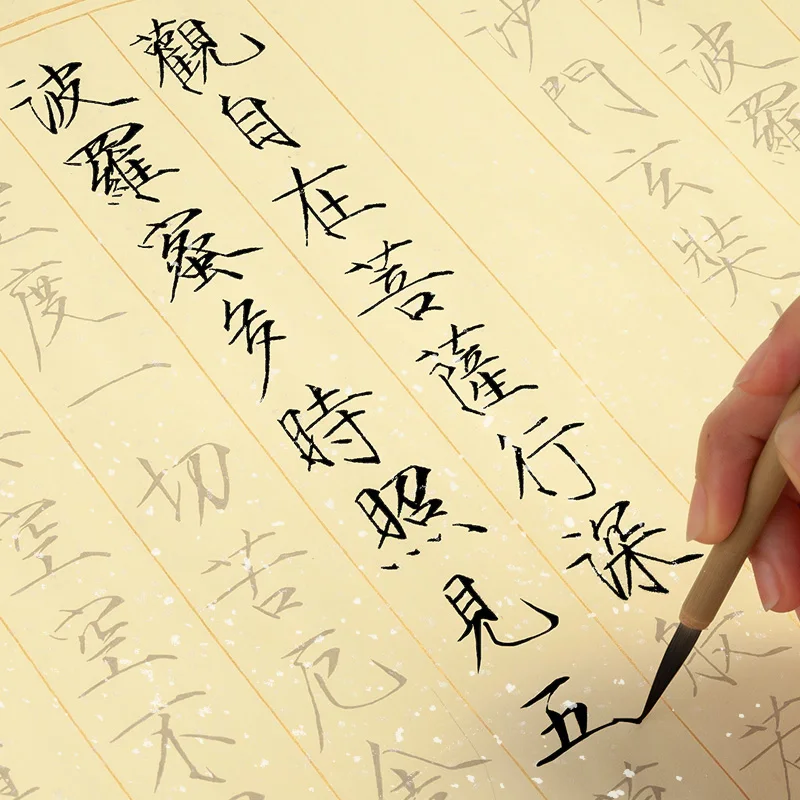 波羅
沙門玄奘
觀自在菩薩行深般若
波羅蜜多時照見五
空度一切苦厄舍
空空不